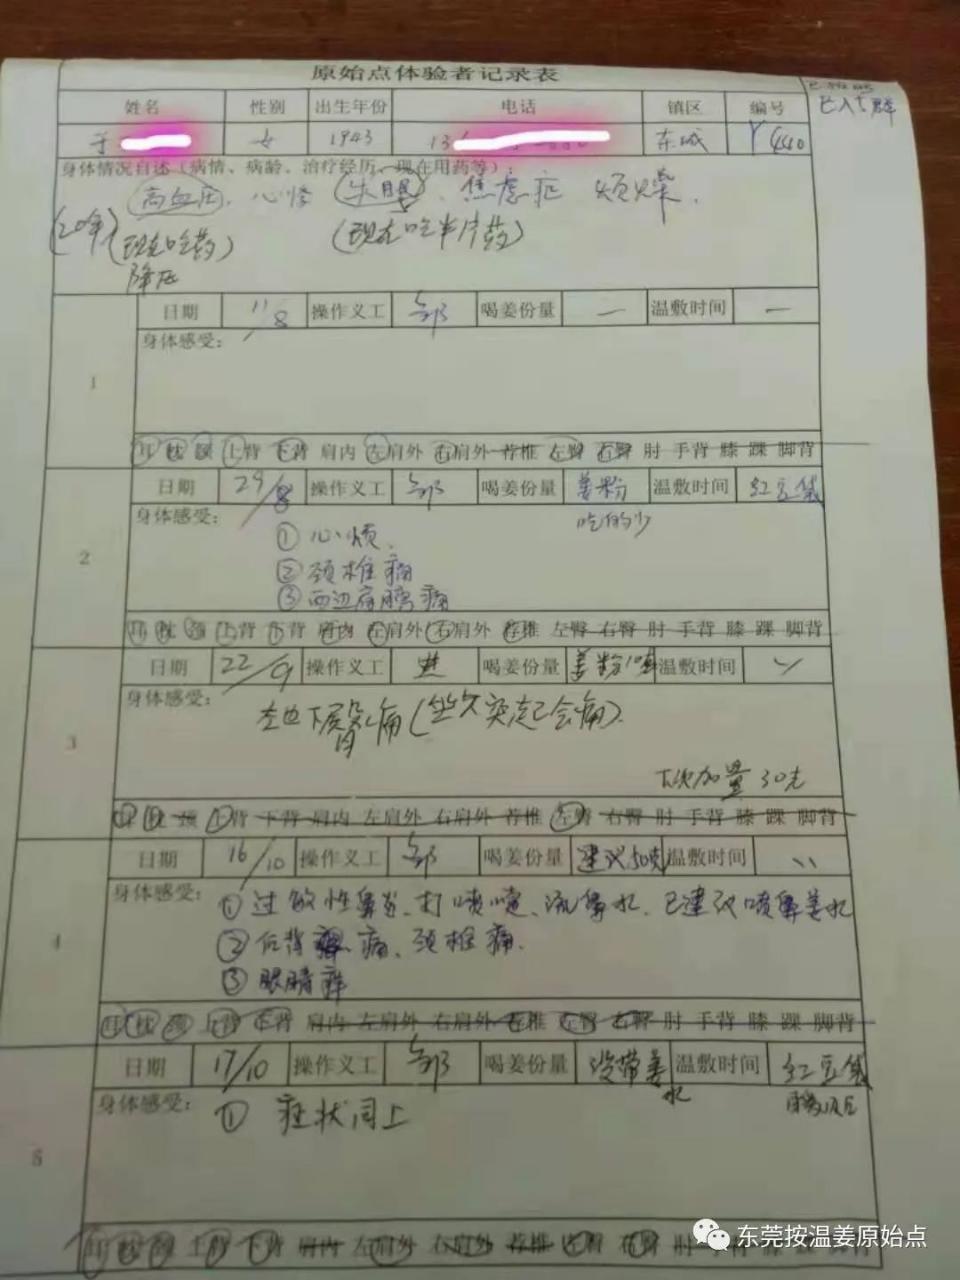 原始点体验者记录表
已入5群
姓名 性别 出生年份 电话 镇区 编号
于 女 1943 13 东城 Y440
身体情况自述（病情、病龄、治疗经历、现在用药等）：
高血压、心悸 失眠、焦虑症 烦燥、
(20年) (现在吃药) (现在吃半片药)
降压
日期 11/8 操作义工 邹 喝姜份量 — 温敷时间 —
1
身体感受：
耳 枕 颈 上背 下背 肩内 左肩外 右肩外 荐椎 左臀 右臀 肘 手背 膝 踝 脚背
日期 29/8 操作义工 邹 喝姜份量 姜粉 温敷时间 红豆袋
吃的少
2
身体感受：
① 心烦、
② 颈椎痛
③ 两边肩膀痛
耳 枕 颈 上背 下背 肩内 左肩外 右肩外 荐椎 左臀 右臀 肘 手背 膝 踝 脚背
日期 22/9 操作义工 喝姜份量 姜粉10 温敷时间
3
身体感受：
左边下臀痛(坐久突起会痛)
下次加量30克
耳 枕 颈 上背 下背 肩内 左肩外 右肩外 荐椎 左臀 右臀 肘 手背 膝 踝 脚背
日期 16/10 操作义工 邹 喝姜份量 建议50克 温敷时间
4
身体感受：
① 过敏性鼻炎、打喷嚏、流鼻水、已建议喷鼻姜水
② 后背痛、颈椎痛、
③ 眼睛痒
耳 枕 颈 上背 下背 肩内 左肩外 右肩外 荐椎 左臀 右臀 肘 手背 膝 踝 脚背
日期 17/10 操作义工 邹 喝姜份量 没带姜水 温敷时间 红豆袋
5
身体感受：
① 症状同上
耳 枕 颈 上背 下背 肩内 左肩外 右肩外 荐椎 左臀 右臀 肘 手背
东莞按温姜原始点